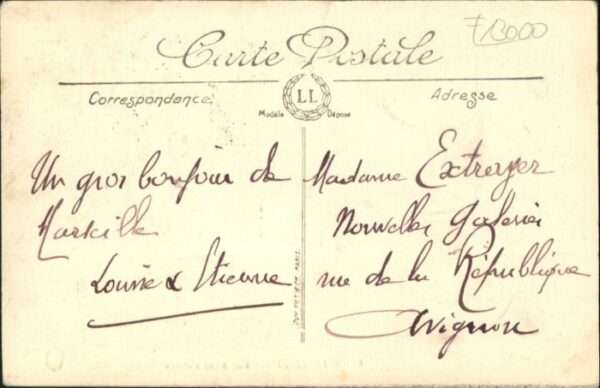 13000
Carte Postale
Correspondance
LL
Adresse
Modèle Déposé
Un gros bonjour de
Marseille
Louise & Etienne
Madame Extrayer
Nouvelles Galeries
rue de la République
Avignon